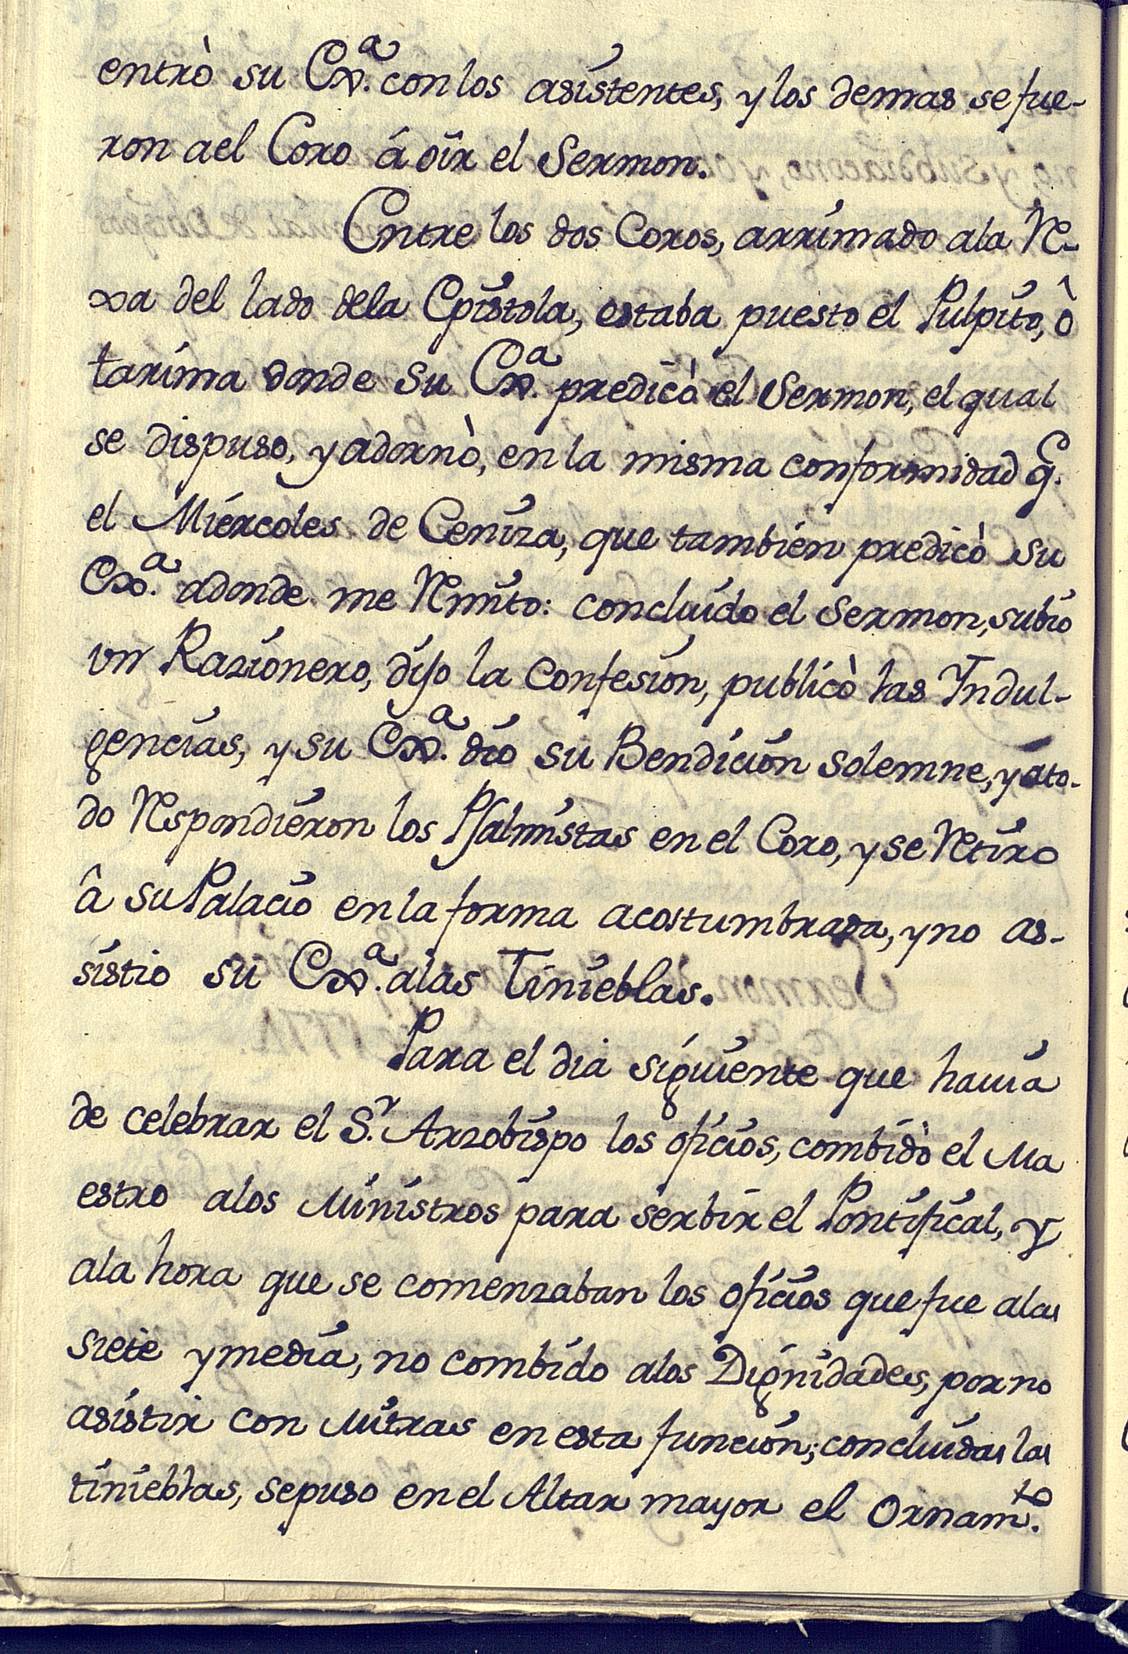 entrò su Exª. con los asistentes, y los demas se fue-
ron a el Coro á oîr el Sermon.
Entre los dos Coros, arrimado ala Re-
xa del lado dela Epistola, estaba puesto el Pulpito, ô
tarima donde su Exª. predicò el Sermon, el qual
se dispuso, y adornò, en la misma conformidad q̃.
el Miércoles de Ceniza, que tambien predicò su
Exª. adonde me Remito: concluido el Sermon, subio
vn Razionero, dijo la Confesion, publicò las Yndul-
gencias, y su Exª. dio su Bendicion solemne, y áto-
do Respondieron los Psalmistas en el Coro, y se Retiro
â su Palacio en la forma acostumbrada, y no as-
sistio su Exª. alas Tinieblas.
Para el dia siguiente que havia
de celebrar el S.ʳ Arzobispo los oficios, combidò el Ma
estro alos Ministros para serbir el Pontifical, y
ala hora que se comenzaban los oficios que fue alas
siete y media, no combido alos Dignidades, por no
asistir con Mitras en esta funcion; concluidas las
tinieblas, se puso en el Altar mayor el Ornam.ᵗᵒ